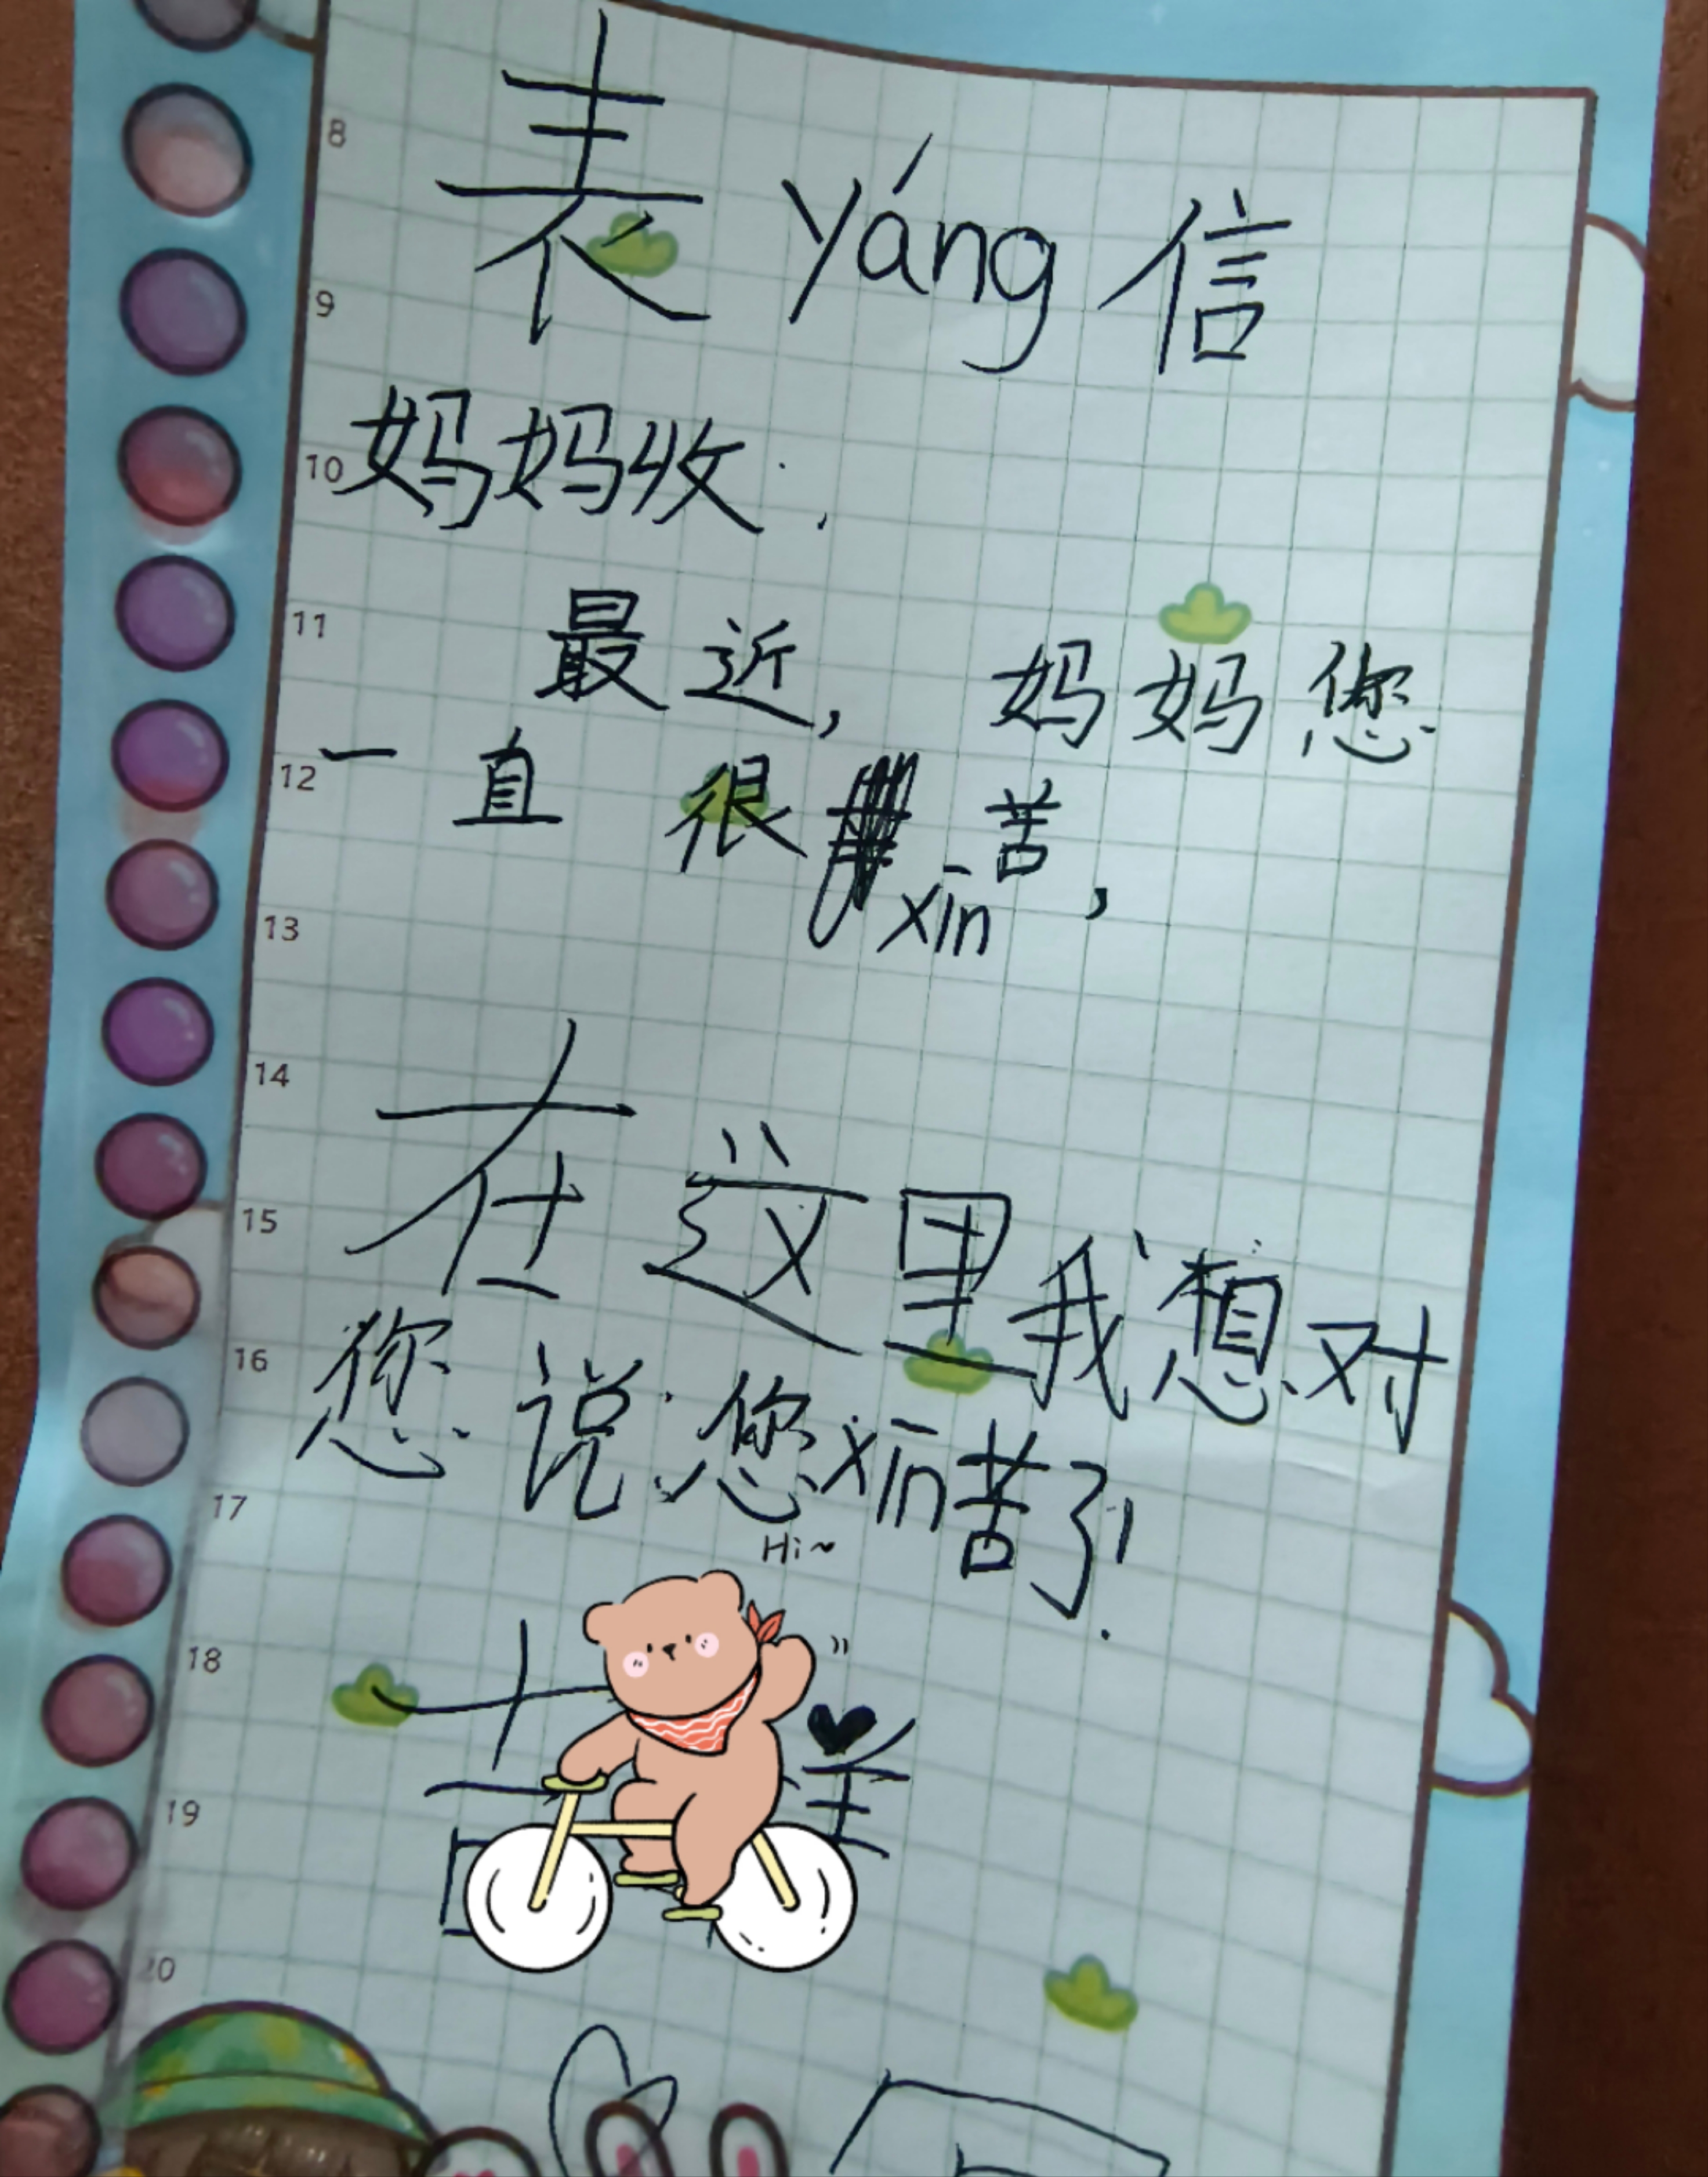 8
表yáng信
9
10
妈妈收：
11
最近，妈妈您
12
一直很xīn苦，
13
14
在这里我想对
15
16
您说：您xīn苦了！
17
Hi~
18
19
20